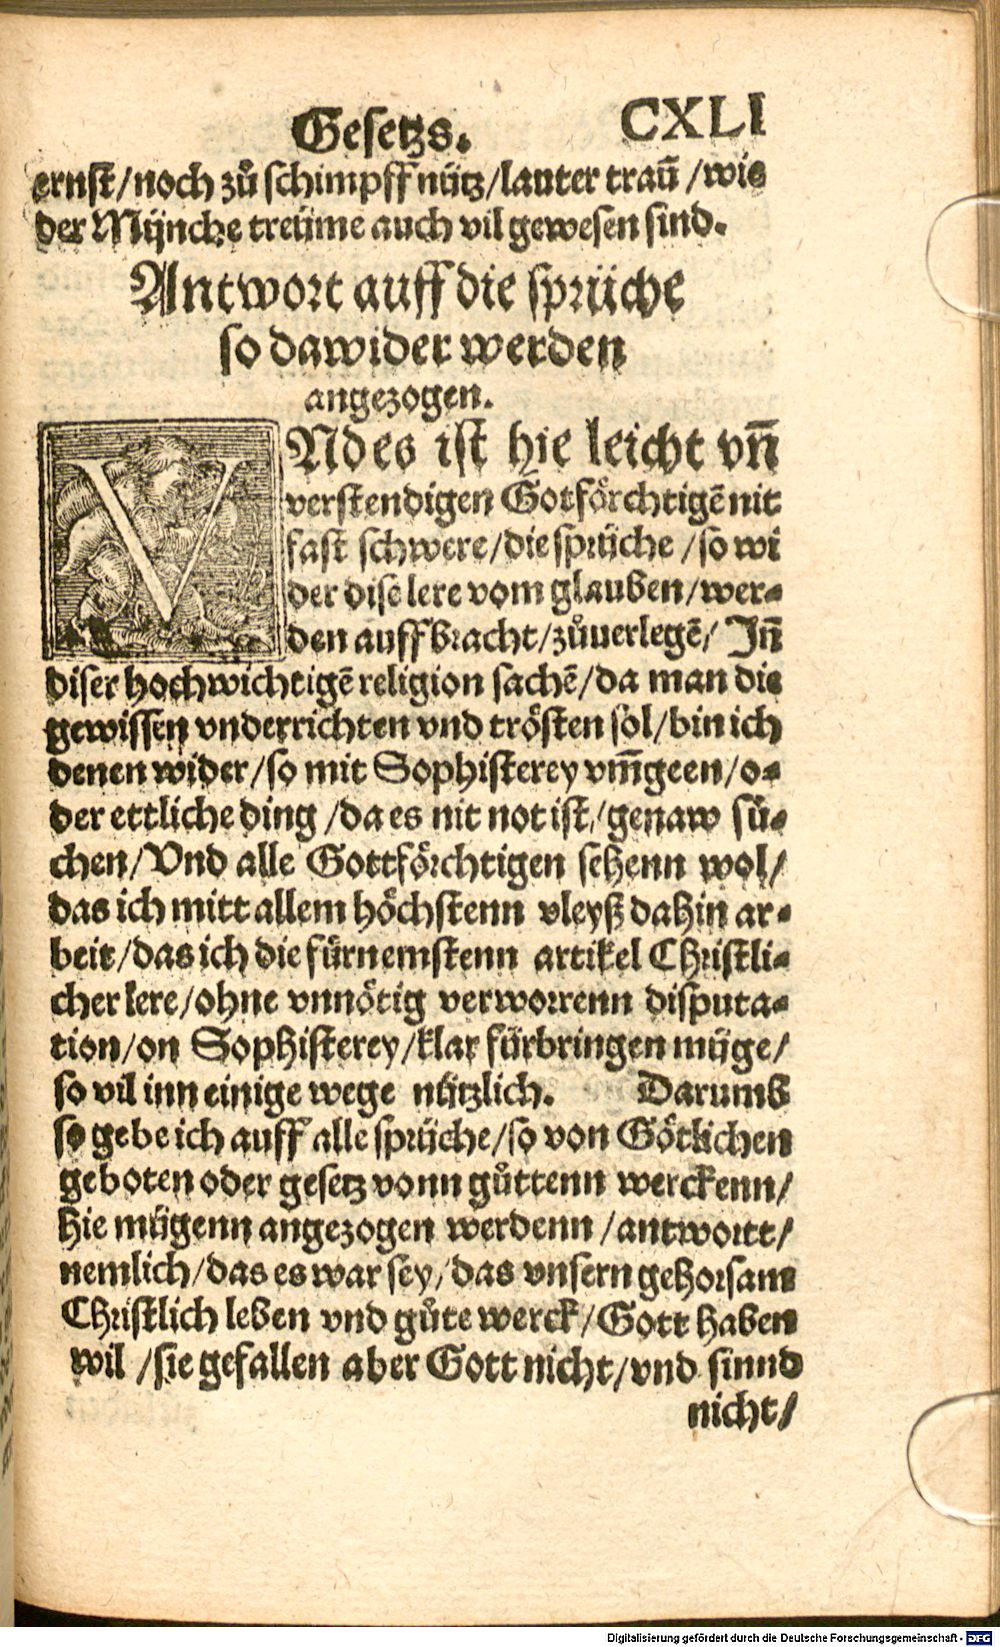 Gesetzs. CXLI
ernst/noch zů schimpff nütz/lauter traū/wie
der Mijnche treüme auch vil gewesen sind.
Antwort auff die sprüche
so dawider werden
angezogen.
VNd es ist hie leicht vñ
verstendigen Gotförchtigē nit
fast schwere/die sprüche/so wi
der dise lere vom glauben/wer-
den auffbracht/zůuerlegē/ Jñ
diser hochwichtigē religion sachē/da man die
gewissen vnderrichten vnd trösten sol/bin ich
denen wider/so mit Sophisterey vm̄geen/o-
der ettliche ding/da es nit not ist/genaw sü-
chen/Vnd alle Gottförchtigen sehenn wol/
das ich mitt allem höchstenn vleyß dahin ar-
beit/das ich die fürnemstenn artikel Christli-
cher lere/ohne vnnötig verworrenn disputa-
tion/on Sophisterey/klar fürbringen müge/
so vil inn einige wege nützlich. Darumb
so gebe ich auff alle sprüche/so von Götlichen
geboten oder gesetz vonn gůttenn werckenn/
hie mügenn angezogen werdenn/antwortt/
nemlich/das es war sey/das vnsern gehorsam
Christlich leben vnd gůte werck/Gott haben
wil/sie gefallen aber Gott nicht/vnd sinnd
nicht/
Digitalisierung gefördert durch die Deutsche Forschungsgemeinschaft - DFG